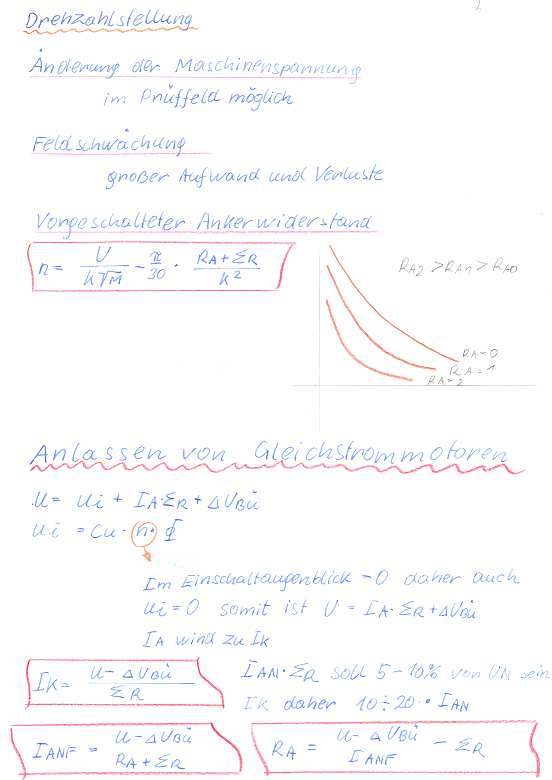 Drehzahlstellung
Änderung der Maschinenspannung
im Prüffeld möglich
Feldschwächung
großer Aufwand und Verluste
Vorgeschalteter Ankerwiderstand
n = U / k√M - π/30 · (RA + ΣR) / k²
RA2 > RA1 > RA0
RA=0
RA=1
RA=2
Anlassen von Gleichstrommotoren
U = Ui + IA·ΣR + ΔUBü
Ui = Cu · n · ϕ
Im Einschaltaugenblick =0 daher auch
Ui=0 somit ist U = IA·ΣR+ΔUBü
IA wird zu IK
IK = (U - ΔUBü) / ΣR
IAN·ΣR soll 5-10% von UN sein
IK daher 10÷20 · IAN
IANF = (U-ΔUBü) / (RA+ΣR)
RA = (U-ΔUBü) / IANF - ΣR